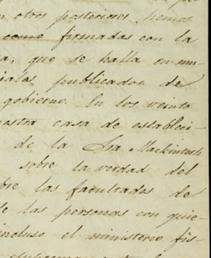 n otros posteriores hemos
como firmadas con la
a, que se halla en mu
iales, publicados de
gobierno. En los veinte
estra casa de estableci
de la Sra Mackintosh
sobre la verdad del
bre las facultades de
e las personas con quie
incluso el ministerio fis